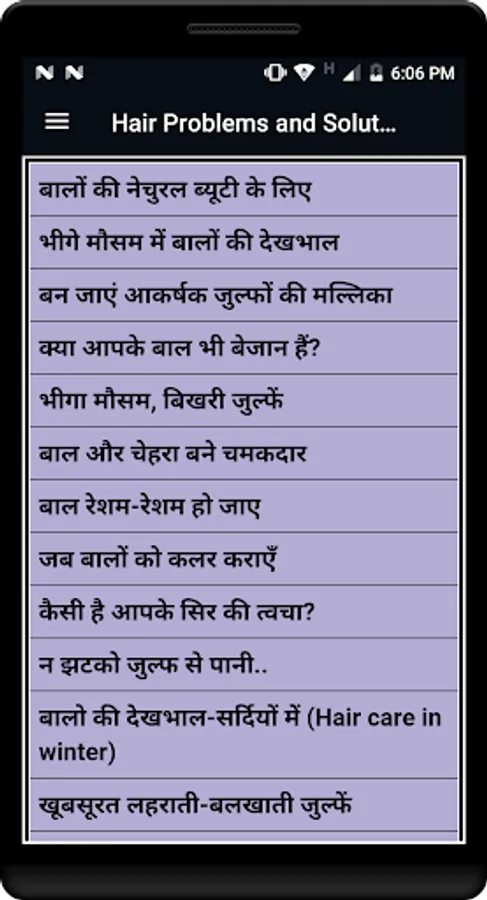 N N H 6:06 PM
Hair Problems and Solut...
बालों की नेचुरल ब्यूटी के लिए
भीगे मौसम में बालों की देखभाल
बन जाएं आकर्षक जुल्फों की मल्लिका
क्या आपके बाल भी बेजान हैं?
भीगा मौसम, बिखरी जुल्फें
बाल और चेहरा बने चमकदार
बाल रेशम-रेशम हो जाए
जब बालों को कलर कराएँ
कैसी है आपके सिर की त्वचा?
न झटको जुल्फ से पानी..
बालो की देखभाल-सर्दियों में (Hair care in
winter)
खूबसूरत लहराती-बलखाती जुल्फें